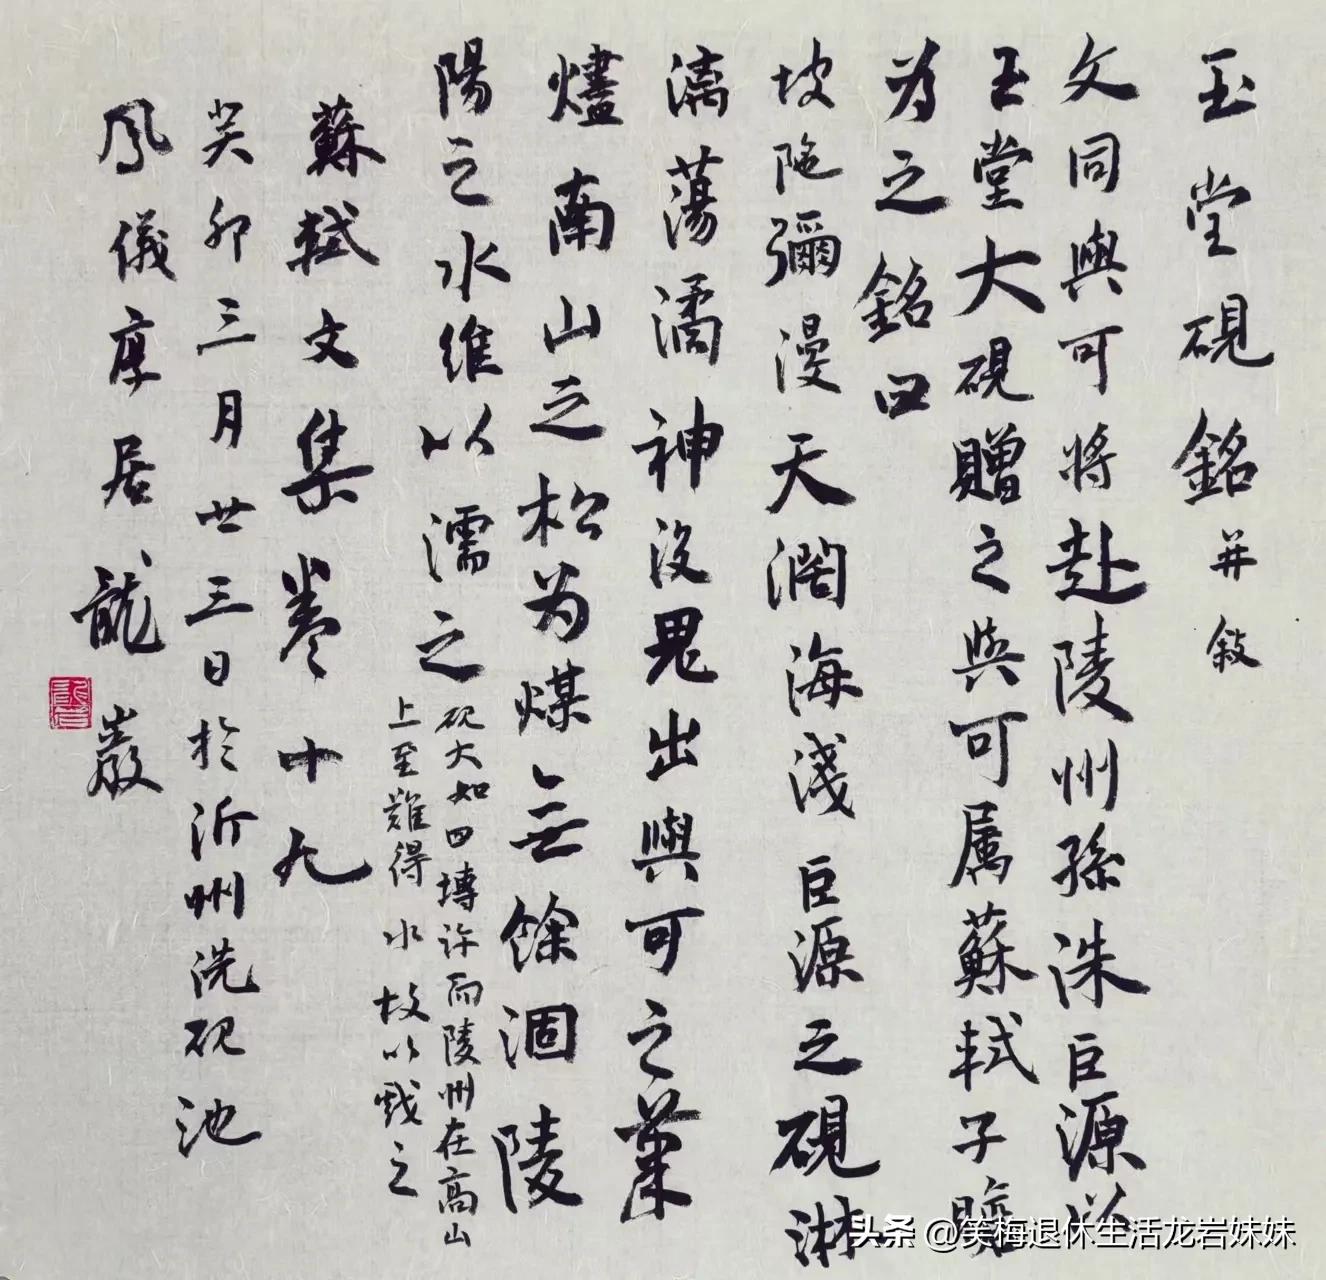 玉堂硯銘并敍
文同與可將赴陵州孫洙巨源以
玉堂大硯贈之與可属蘇軾子瞻
为之銘曰
坡陁彌漫天濶海淺巨源之硯淋
漓蕩潏神没鬼出與可之筆
燼南山之松为煤無餘涸陵
陽之水維以濡之
砚大如四塼許而陵州在高山
上至難得水故以戲之
蘇軾文集卷十九
癸卯三月廿三日於沂州洗砚池
鳳儀居龍巖
头条 @笑梅退休生活龙岩妹妹